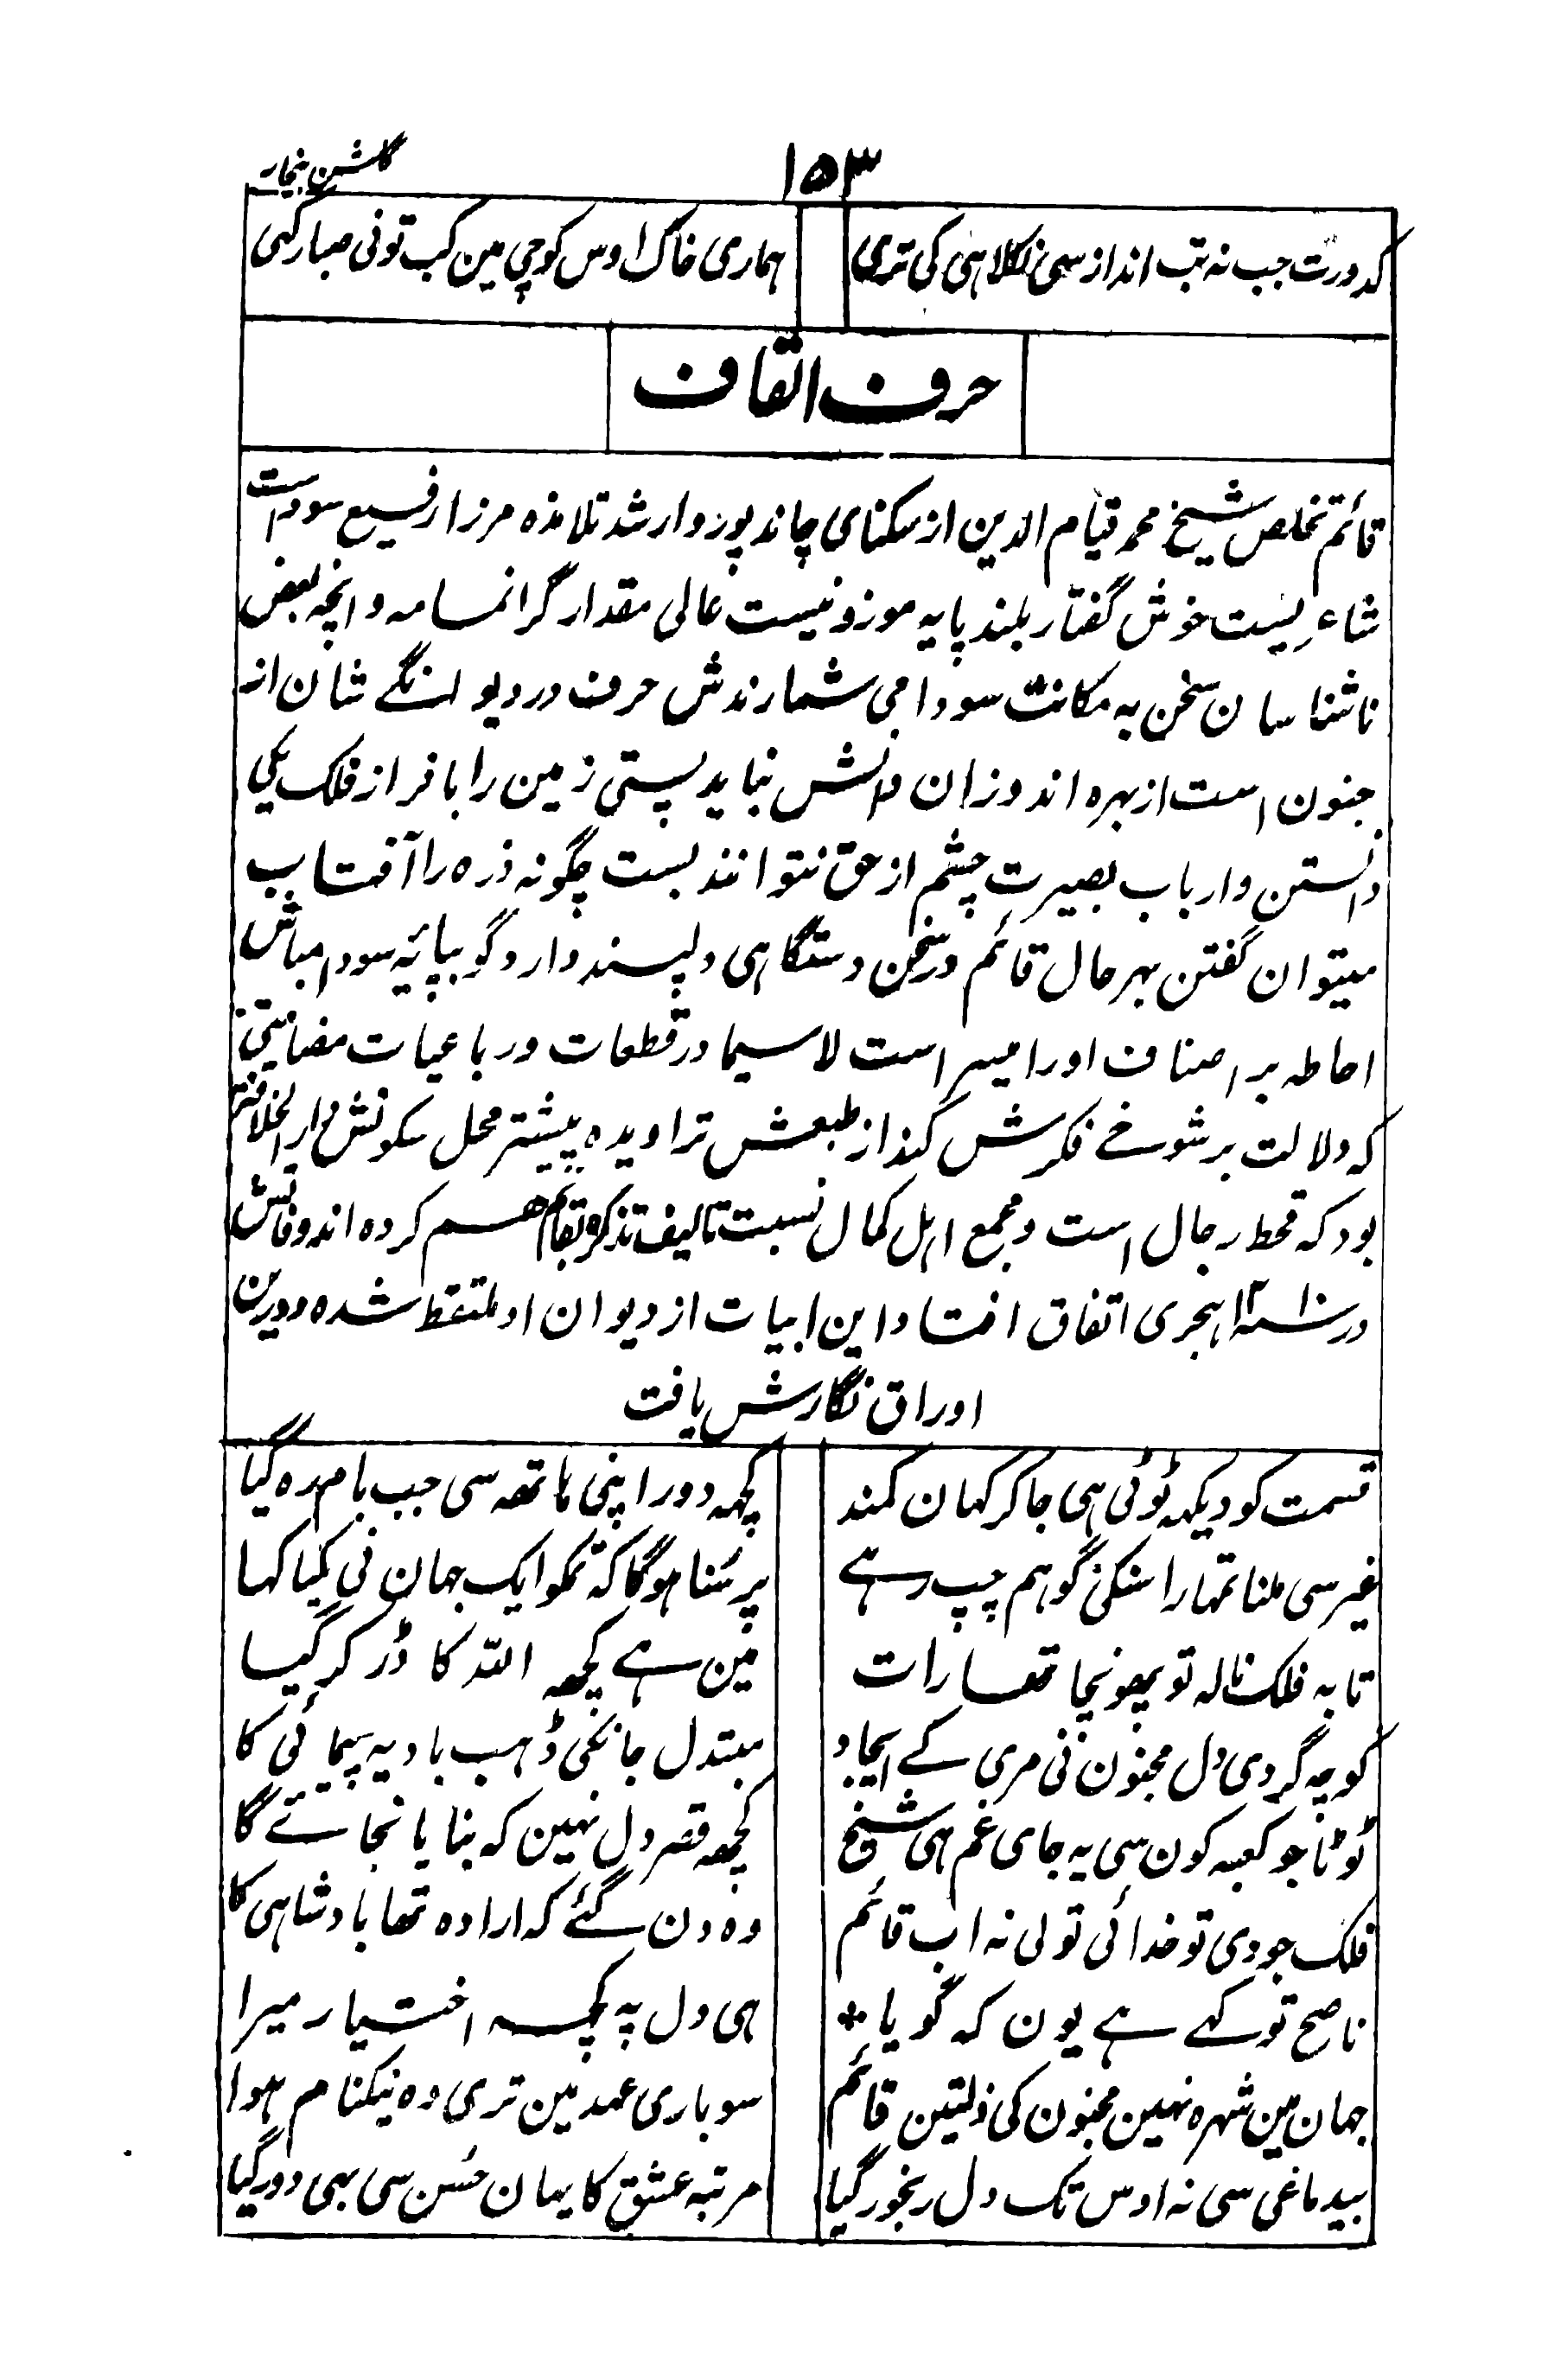 ۱۵۳
گلشن بیخار
کدورت جب نہ تب انداز سی نکلا ہی کی تری
ہماری خاک اوس کوچی مین کب تونی صبا رکہی
حرف القاف
قائم تخلص شیخ محمد قیام الدین از سکنای چاندپور و ارشد تلامذہ مرزا رفیع سوداست
شاعریست خوش گفتار بلند پایہ موزونیست عالی مقدار گرانمایہ و انچہ بعض
ناشناسان سخن بہ مکانت سودا می شمارندش حرف در دیوانگے شان از
جنون است از بہرہ اندوزان دانش نباید پستی زمین را با فراز فلک یکی
دانستن و ارباب بصیرت چشم از حق نتوانند بست چگونہ ذرہ را آفتاب
میتوان گفتن بہر حال قائم در سخن دستگاہی دلپسند دارد گو بپائیہ سودا مباش
احاطہ بر اصناف اورا میسر است لاسیما در قطعات و رباعیات مضامینی
کہ دلالت بر شوخے فکرش کند از طبعش تراویدہ پیشتر محل سکونتش دار الخلافتہ
بود کہ قحط رجال است و مجمع اہل کمال نسبت تالیف تذکرہ بقائم ہم کردہ اند وفاتش
در سنہ ۱۲۱۰ ہجری اتفاق افتاد این ابیات از دیوان او ملتقط شدہ و درین
اوراق نگارش یافت
قسمت کو دیکہہ ٹوٹی ہی جا کر کہان کمند
کچہہ دور اپنی ہاتہہ سی جب بام رہ گیا
غیر سی ملنا تمہارا سنکی گو ہم چپ رہے
پر سُنا ہوگا کہ تمکو ایک جہان نی کیا کہا
تا بہ فلک نالہ تو پہونچا تھا رات
مین ہے کچھ اللہ کا ڈر کر گیا
کوچہ گردی دل مجنون نی مری کے ایجاد
مبتدل جانکی ڈہب بادیہ پیمائی کا
ٹوٹا جو کعبہ کون سی یہ جای غم ہی شیخ
کچھ قصر دل نہین کہ بنایا نجائے گا
فلک جو دی تو خدائی تو لی نہ اب قائم
وہ دن گئے کہ ارادہ تھا بادشاہی کا
ناصح تو کہے ہے یون کہ گویا *
ہی دل پہ کچہ اختیار میرا
جہان مین شہرہ نہین مجنون کی ذلتین قائم
سو باری عہد مین تری وہ نیکنام ہوا
بیدماغی سی نہ اوس تک دل رنجور گیا
مرتبہ عشق کا یہان حُسن سی بہی دور گیا